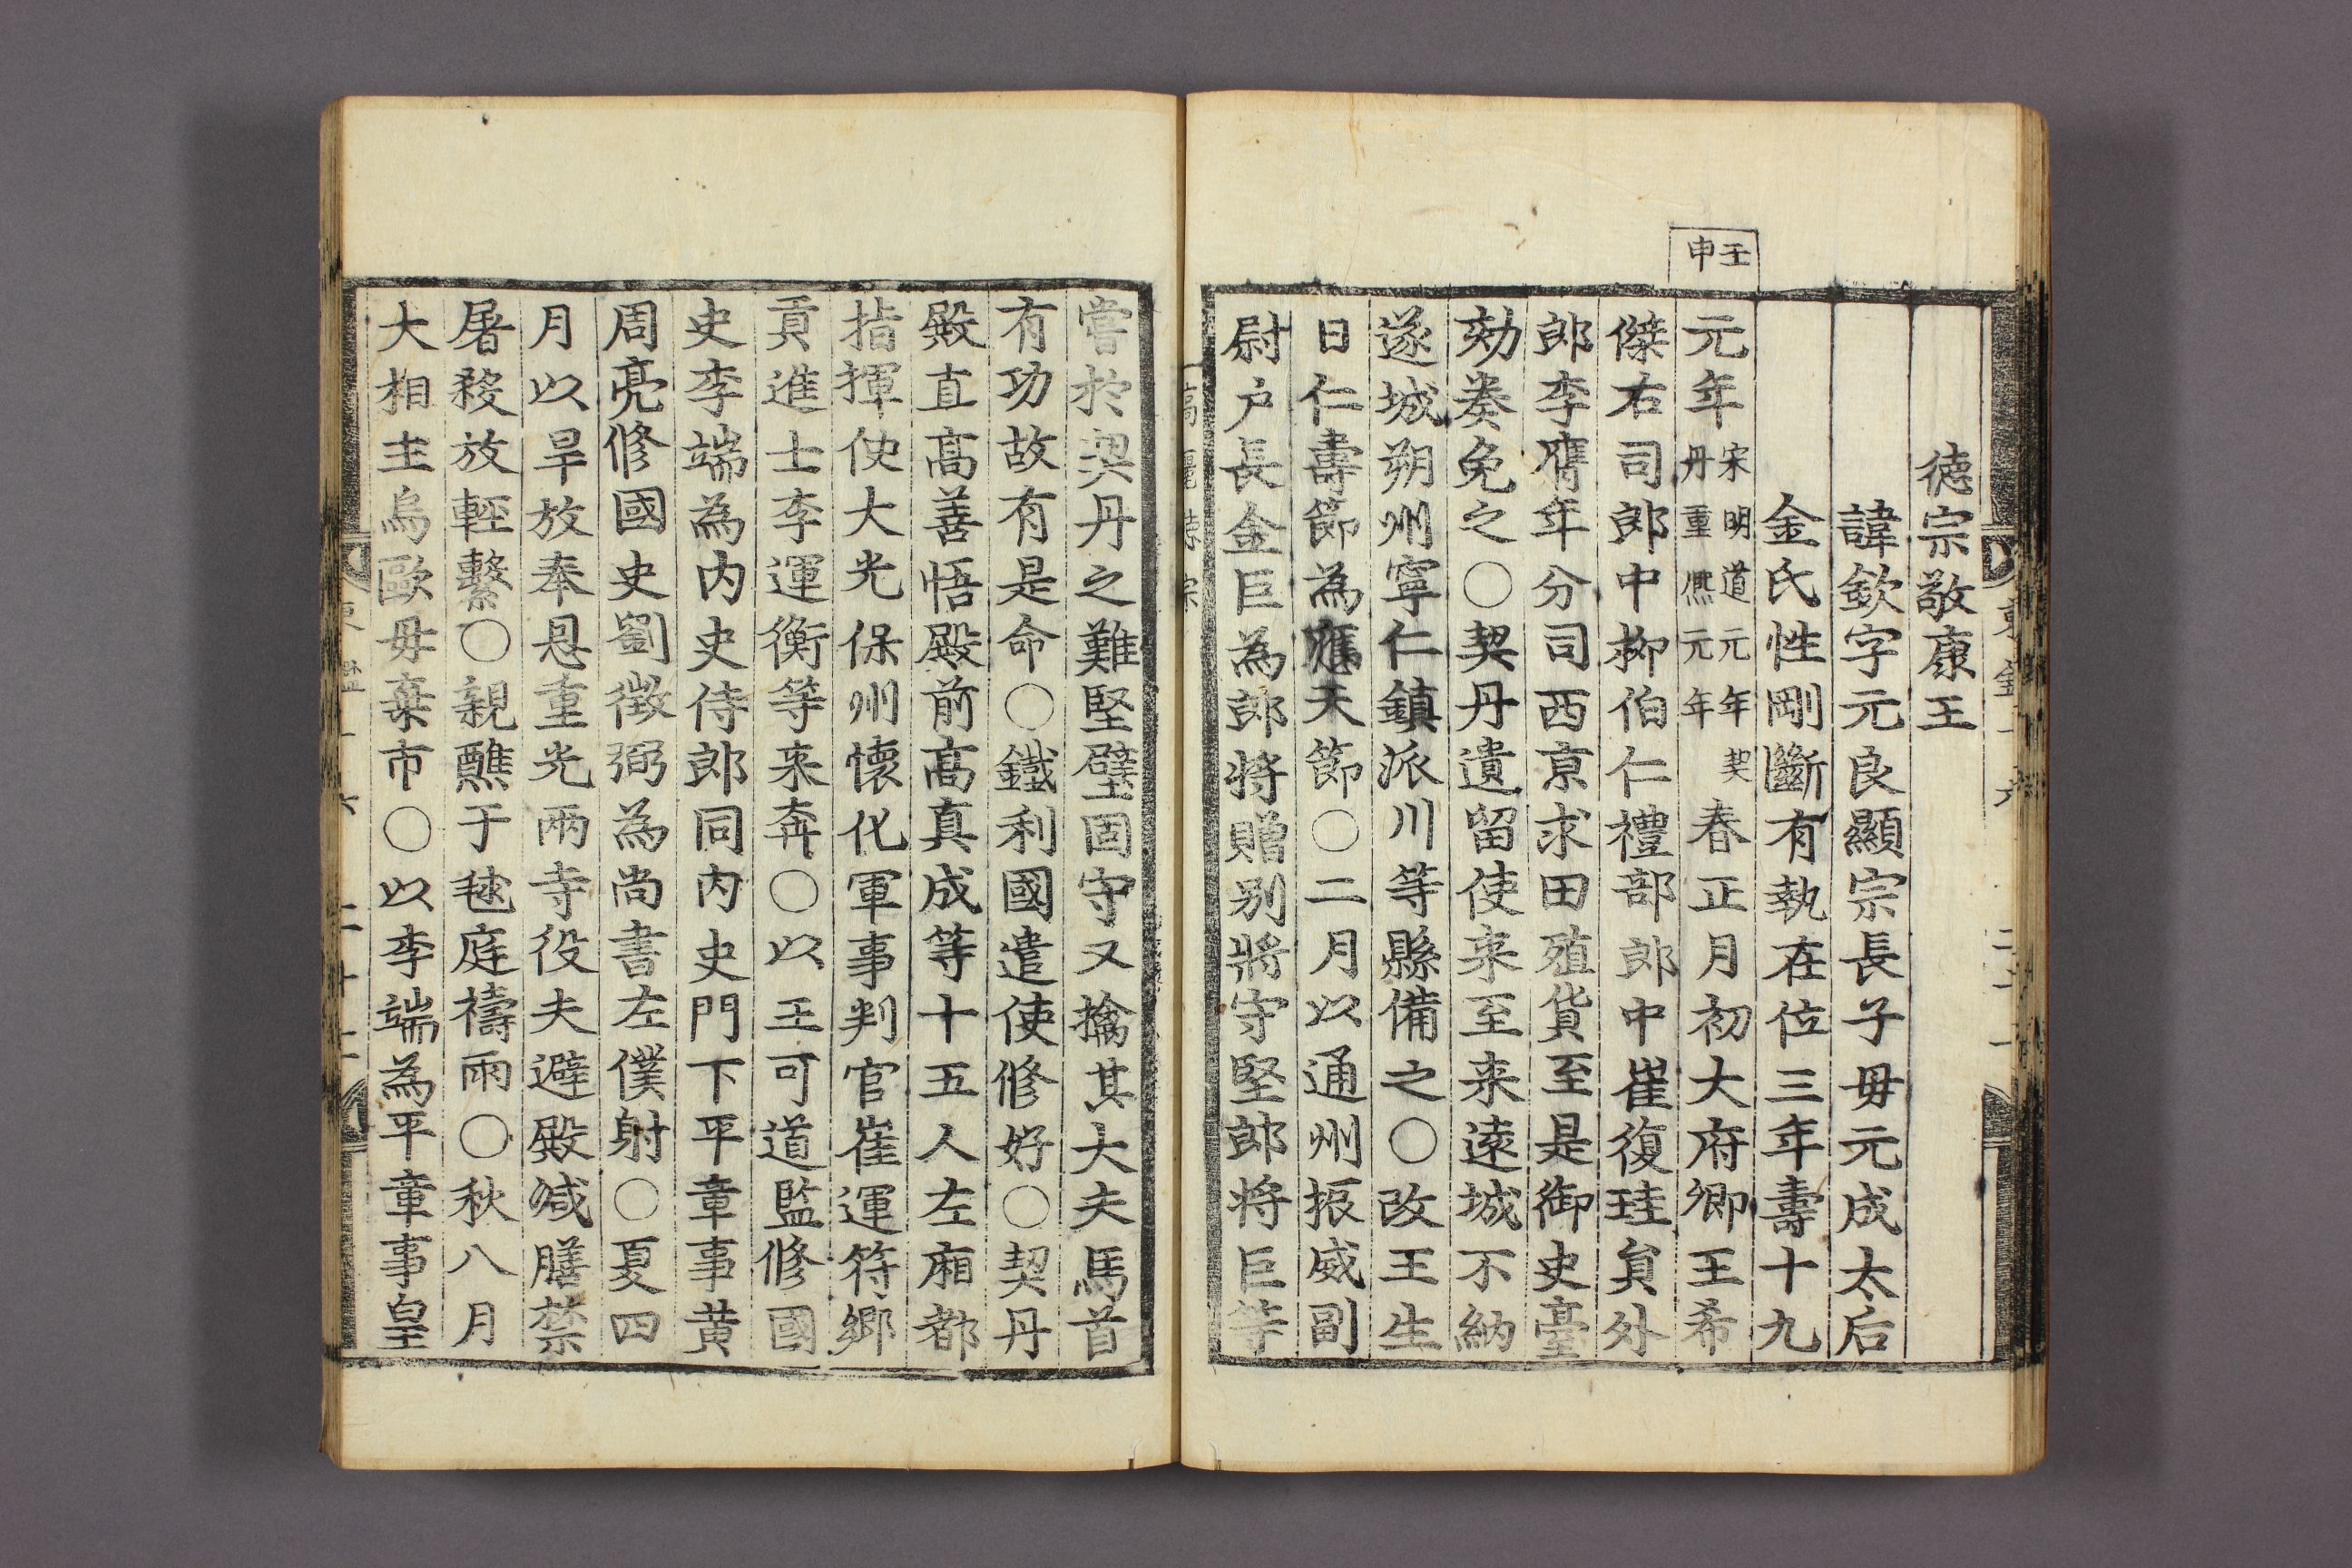 壬申
德宗敬康王
諱欽字元良顯宗長子毋元成太后
金氏性剛斷有執在位三年壽十九
元年宋明道元年契丹重熙元年春正月初大府卿王希
傑右司郎中柳伯仁禮部郎中崔復珪貟外
郎李膺年分司西京求田殖貨至是御史臺
劾奏免之○契丹遺留使来至来遠城不納
遂城朔州寧仁鎮派川等縣備之○改王生
日仁壽節為應天節○二月以通州振威副
尉户長金巨為郎将贈别將守堅郎将巨等
嘗於契丹之難堅壁固守又擒其大夫馬首
有功故有是命○鐵利國遣使修好○契丹
殿直高善悟殿前高真成等十五人左廂都
指揮使大光保州懷化軍事判官崔運符鄉
貢進士李運衡等来奔○以王可道監修國
史李端為内史侍郎同内史門下平章事黄
周亮修國史劉徵弼為尚書左僕射○夏四
月以旱放奉恩重光兩寺役夫避殿减膳禁
屠殺放輕繫○親醮于毬庭禱雨○秋八月
大相主烏歐毋棄市○以李端為平章事皇